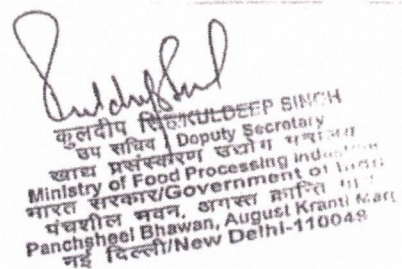 कुलदीप सिंह/KULDEEP SINGH
उप सचिव / Deputy Secretary
खाद्य प्रसंस्करण उद्योग मंत्रालय
Ministry of Food Processing Industries
भारत सरकार/Government of India
पंचशील भवन, अगस्त क्रान्ति मार्ग
Panchsheel Bhawan, August Kranti Marg
नई दिल्ली/New Delhi-110049